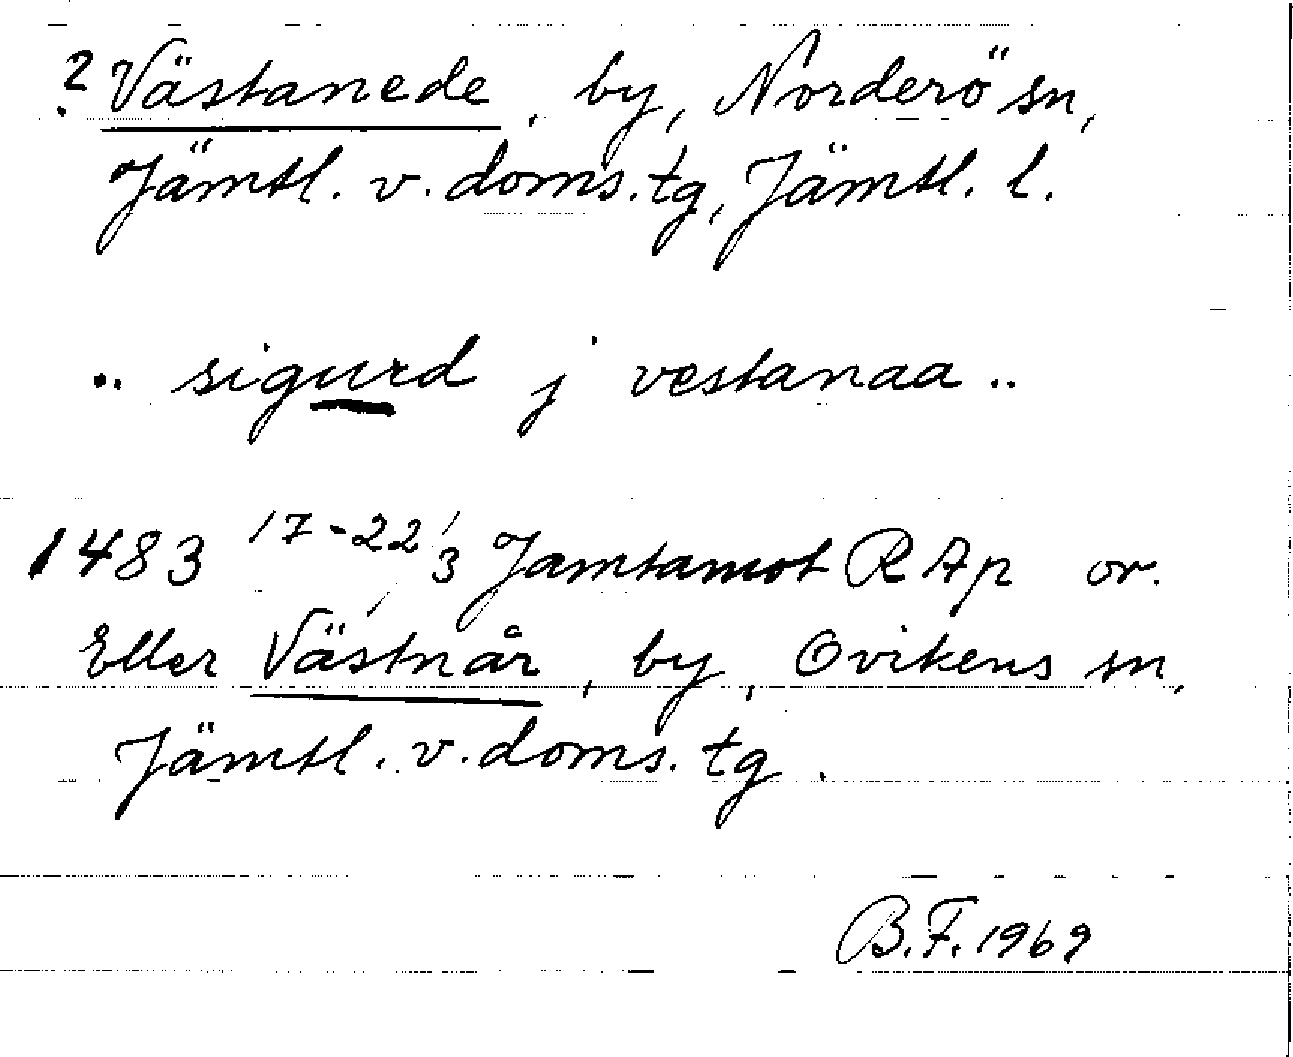 ? Västanede, by, Norderö sn,
Jämtl. v. doms. tg, Jämtl. l.
.. sigurd j vestanaa ..
1483 17-22/3 Jamtamot RAp or.
Eller Västnår, by, Ovikens sn,
Jämtl. v. doms. tg.
B.F. 1969